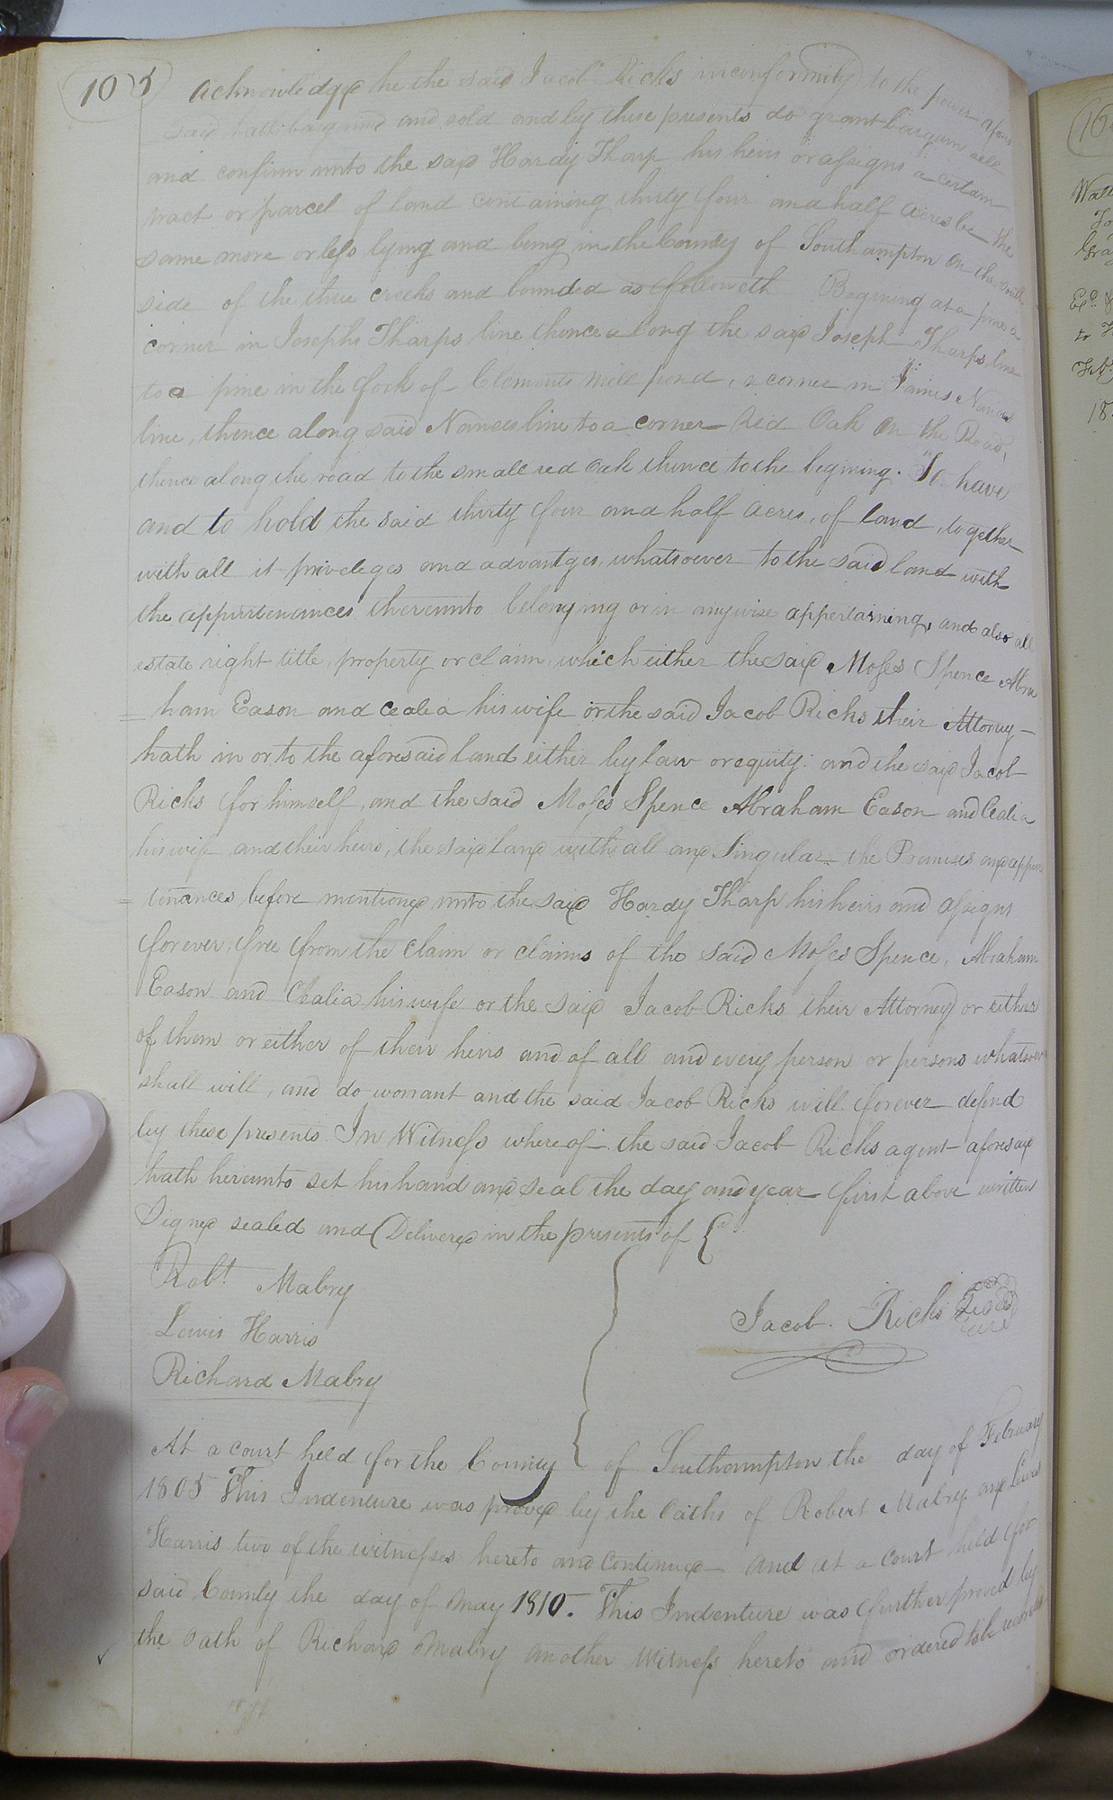 105
acknowledged he the said Jacob Ricks in conformity to the power afore
said hath bargained and sold and by these presents do grant bargain sell
and confirm unto the said Hardy Tharp his heirs or assigns a certain
tract or parcel of land containing thirty four and half acres be the
same more or less lying and being in the County of Southampton on the south
side of the three creeks and bounded as followeth Begining at a pine a
corner in Josephs Tharps line thence along the said Joseph Tharps line
to a pine in the fork of Clements mill pond, a corner in James Nances
line, thence along said Nances line to a corner Red Oak on the Road,
thence along the road to the small red oak thence to the begining. To have
and to hold the said thirty four and half acres, of land, together
with all it priveleges and advantges, whatsoever to the said land with
the appurtenances thereunto belonging or in anywise appertaining, and also all
estate right title, property or claim, which either the said Moses Spence Abra
= ham Eason and Cealia his wife or the said Jacob Ricks their Attorney -
hath in or to the aforesaid land either by law or equity: and the said Jacob
Ricks for himself, and the said Moses Spence Abraham Eason and Cealia
his wife and their heirs, the said land with all and Singular the Premises and appur
= tenances before mentioned unto the said Hardy Tharp his heirs and assigns
forever, free from the claim or claims of the said Moses Spence, Abraham
Eason and Cealia his wife or the said Jacob Ricks their Attorney or either
of them or either of their heirs and of all and every person or persons whatsoever
shall will, and do warrant and the said Jacob Ricks will forever defend
by these presents. In Witness whereof the said Jacob Ricks agent aforesaid
hath hereunto set his hand and seal the day and year first above written
Signed sealed and Delivered in the presents of
Robt Mabry
Jacob. Ricks Seal
Lewis Harris
Richard Mabry
At a court held for the County of Southampton the day of February
1805 This Indenture was proved by the Oaths of Robert Mabry and Lewis
Harris two of the witnesses hereto and Continued - And at a Court held for
said County the day of May 1810. This Indenture was further proved by
the oath of Richard Mabry another Witness hereto and ordered to be recorded